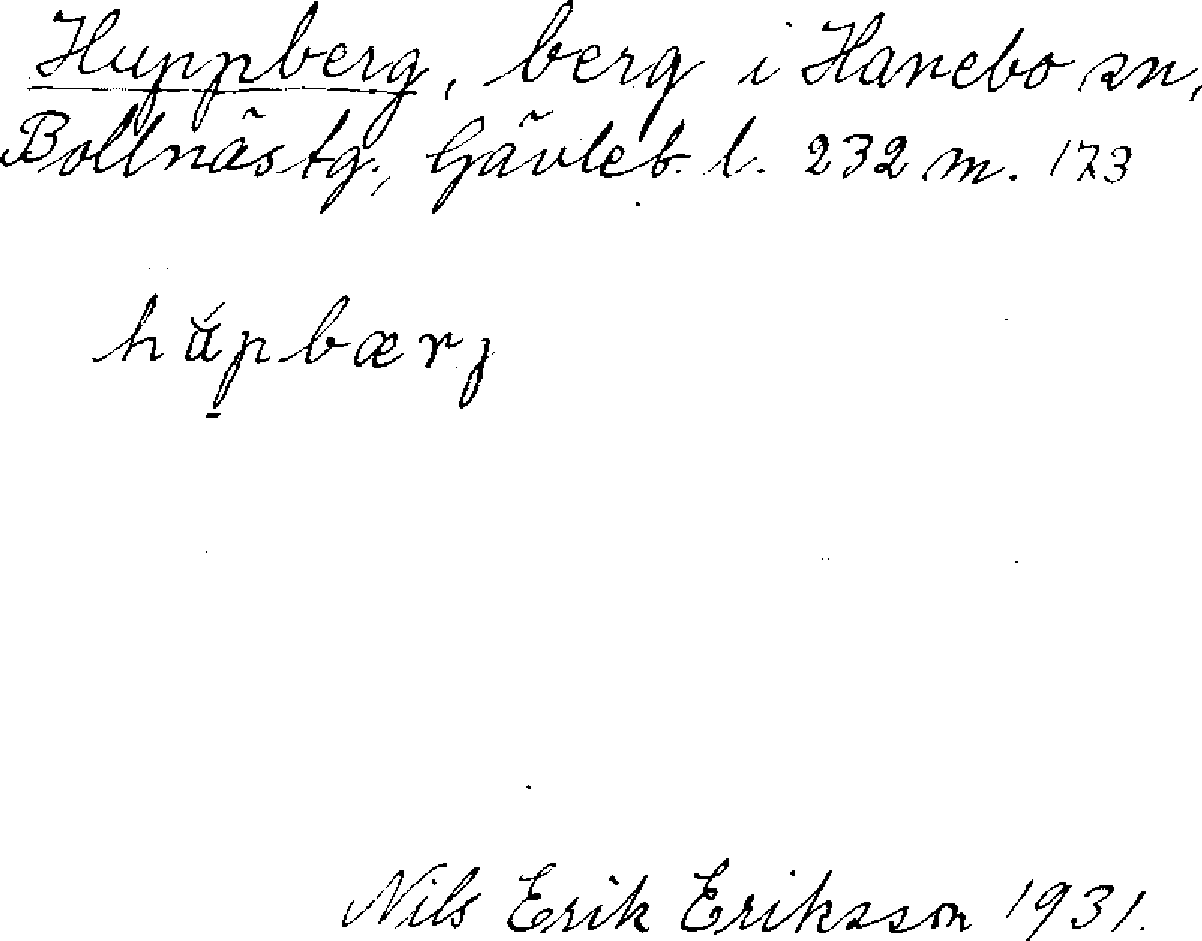 Huppberg, berg i Hanebo sn,
Bollnästg., Gävleb. l. 232 m. 173
hu̇́p̠bærj
Nils Erik Eriksson 1931.